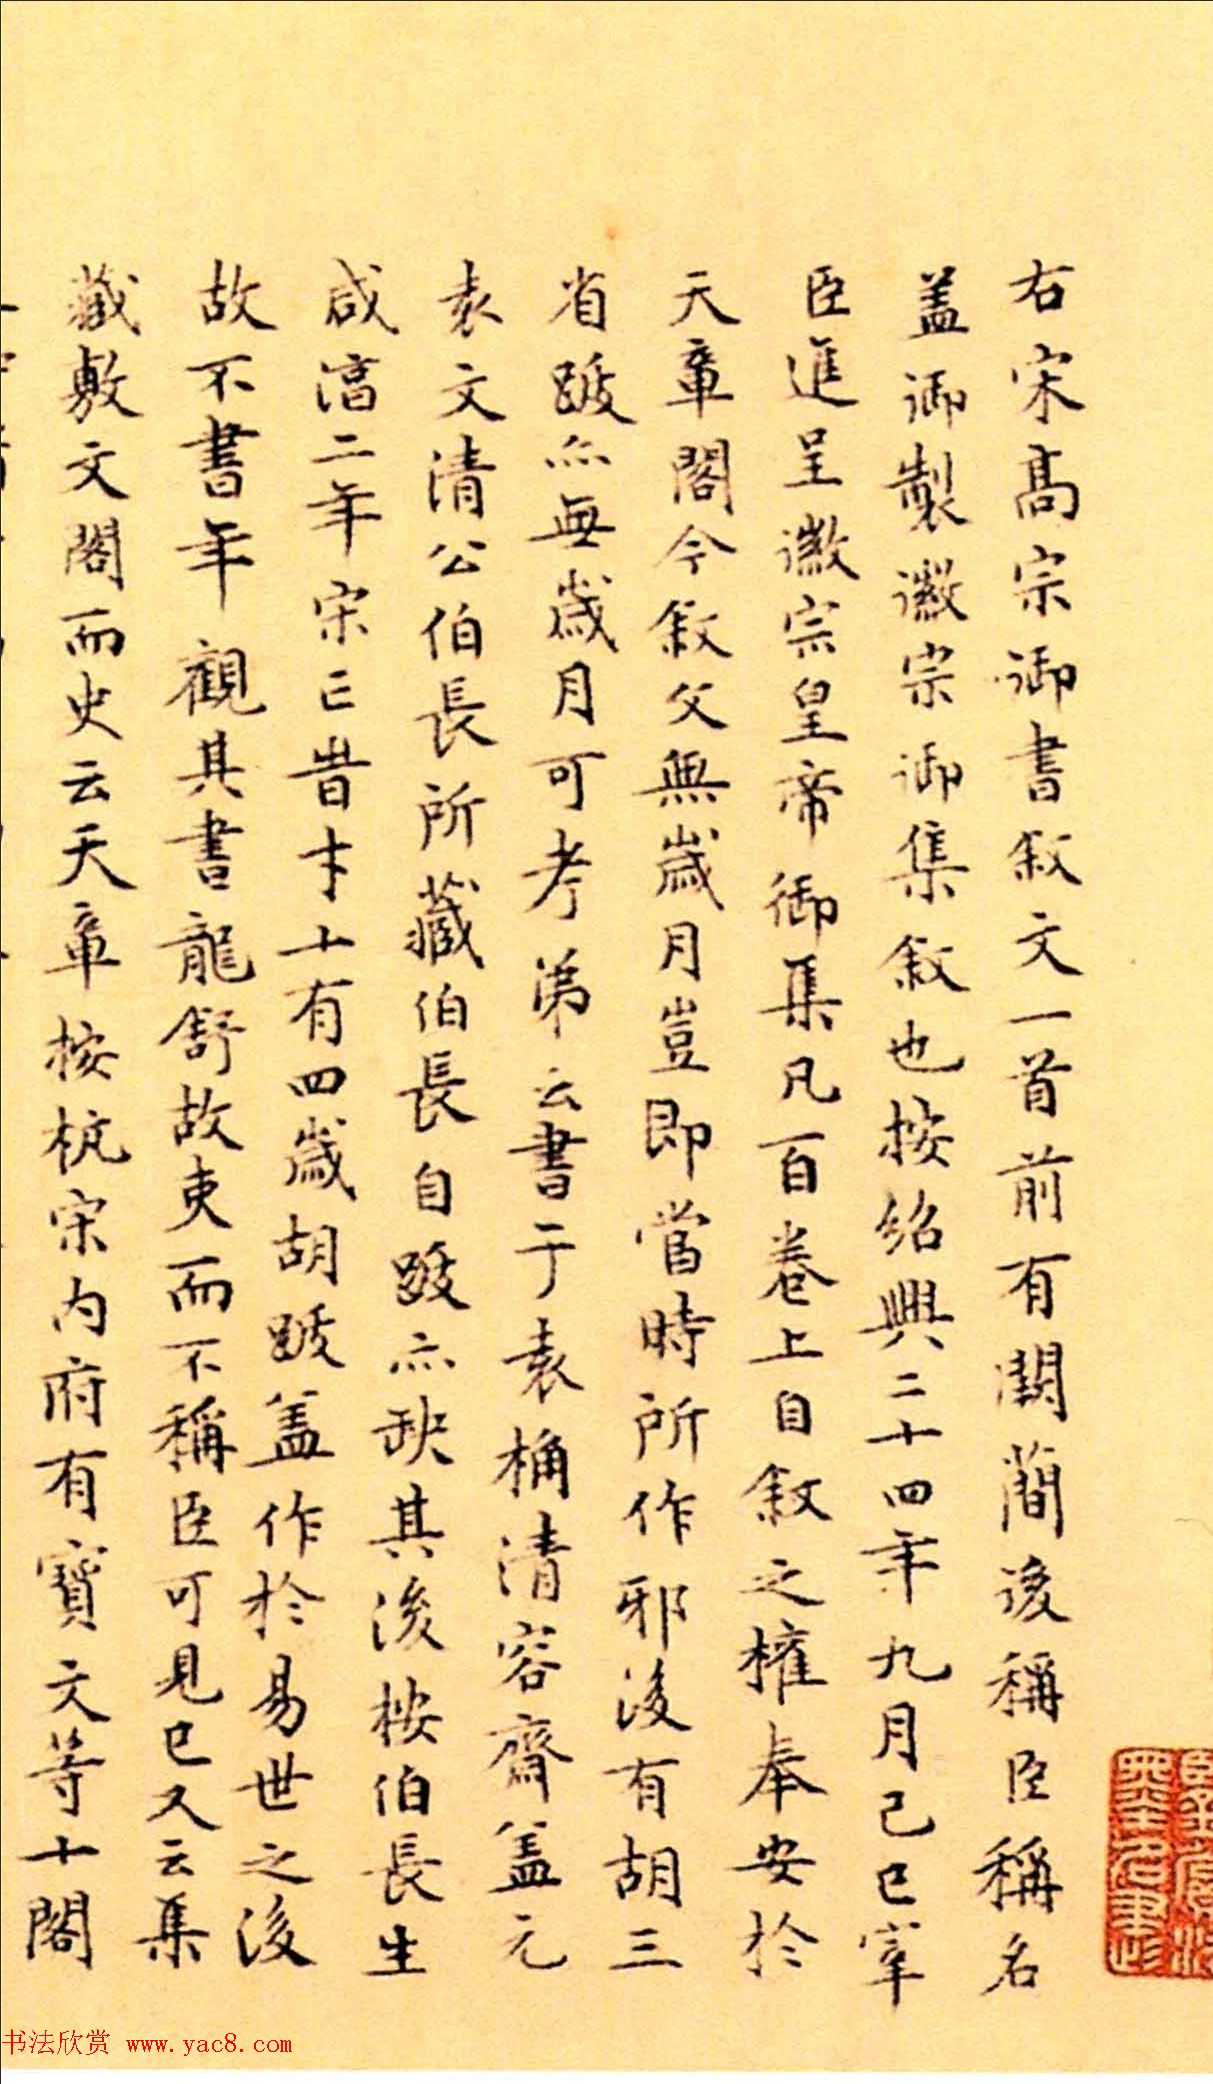 右宋高宗御書敘文一首前有闕簡後稱臣稱名
蓋御製徽宗御集敘也按紹興二十四年九月己巳宰
臣進呈徽宗皇帝御集凡百卷上自敘之權奉安於
天章閣今敘父無歲月豈即當時所作邪後有胡三
省跋亦無歲月可考第云書于袁桷清容齋蓋元
袁文清公伯長所藏伯長自跋亦缺其後按伯長生
咸淳二年宋亡昔才十有四歲胡跋蓋作於易世之後
故不書年觀其書龍舒故吏而不稱臣可見已又云集
藏敷文閣而史云天章按杭宋內府有寶文等十閣
书法欣赏 www.yac8.com